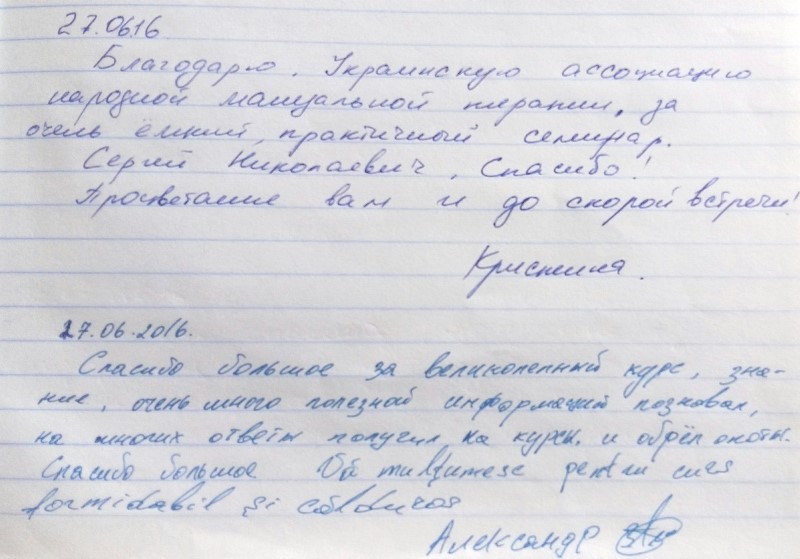 27.0616
Благодарю, Украинскую ассоциацию
народной мануальной терапии, за
очень ёмкий, практичный семинар.
Сергей Николаевич, Спасибо!
Процветание вам и до скорой встречи!
Кристина.
27.06.2016.
Спасибо большое за великолепный курс, зна-
ние, очень много полезной информаций позновал,
на многих ответы получил на курсы. и обрёл
Спасибо большое Vă mulțumesc pentru curs
formidabil și călduros
Александр